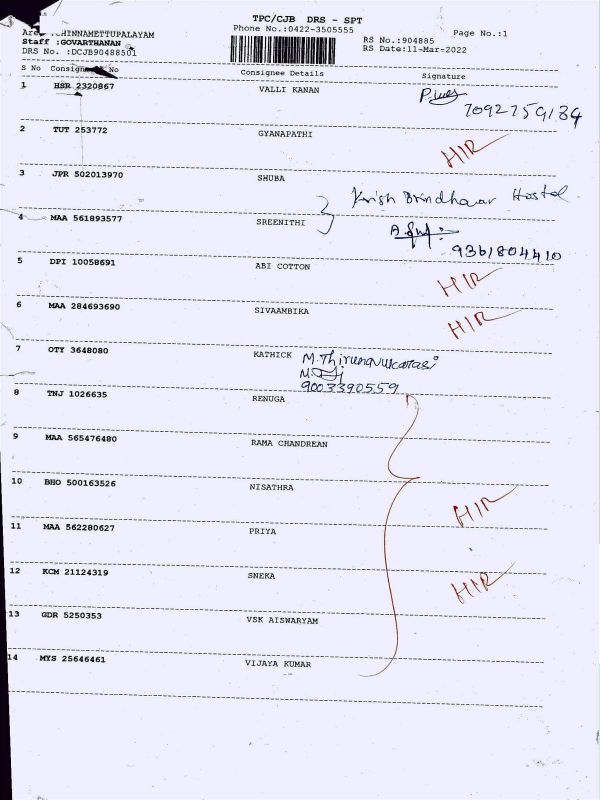 TPC/CJB DRS - SPT
Phone No.:0422-3505555
Page No.:1
CHINNAMETTUPALAYAM
Staff :GOVARTHANAN
DRS No. :DCJB90488501
RS No.:904885
RS Date:11-Mar-2022
S No Consign No Consignee Details Signature
1 HSR 2320867 VALLI KANAN
7092759134
2 TUT 253772 GYANAPATHI HIR
3 JPR 502013970 SHUBA
Krish Brindhavar Hostel
4 MAA 561893577 SREENITHI
9361804410
5 DPI 10058691 ABI COTTON HIR
6 MAA 284693690 SIVAAMBIKA HIR
7 OTY 3648080 KATHICK M.Thirunavukarasi
9003390559
8 TNJ 1026635 RENUGA
9 MAA 565476480 RAMA CHANDREAN
10 BHO 500163526 NISATHRA HIR
11 MAA 562280627 PRIYA
12 KCM 21124319 SNEKA HIR
13 GDR 5250353 VSK AISWARYAM
14 MYS 25646461 VIJAYA KUMAR